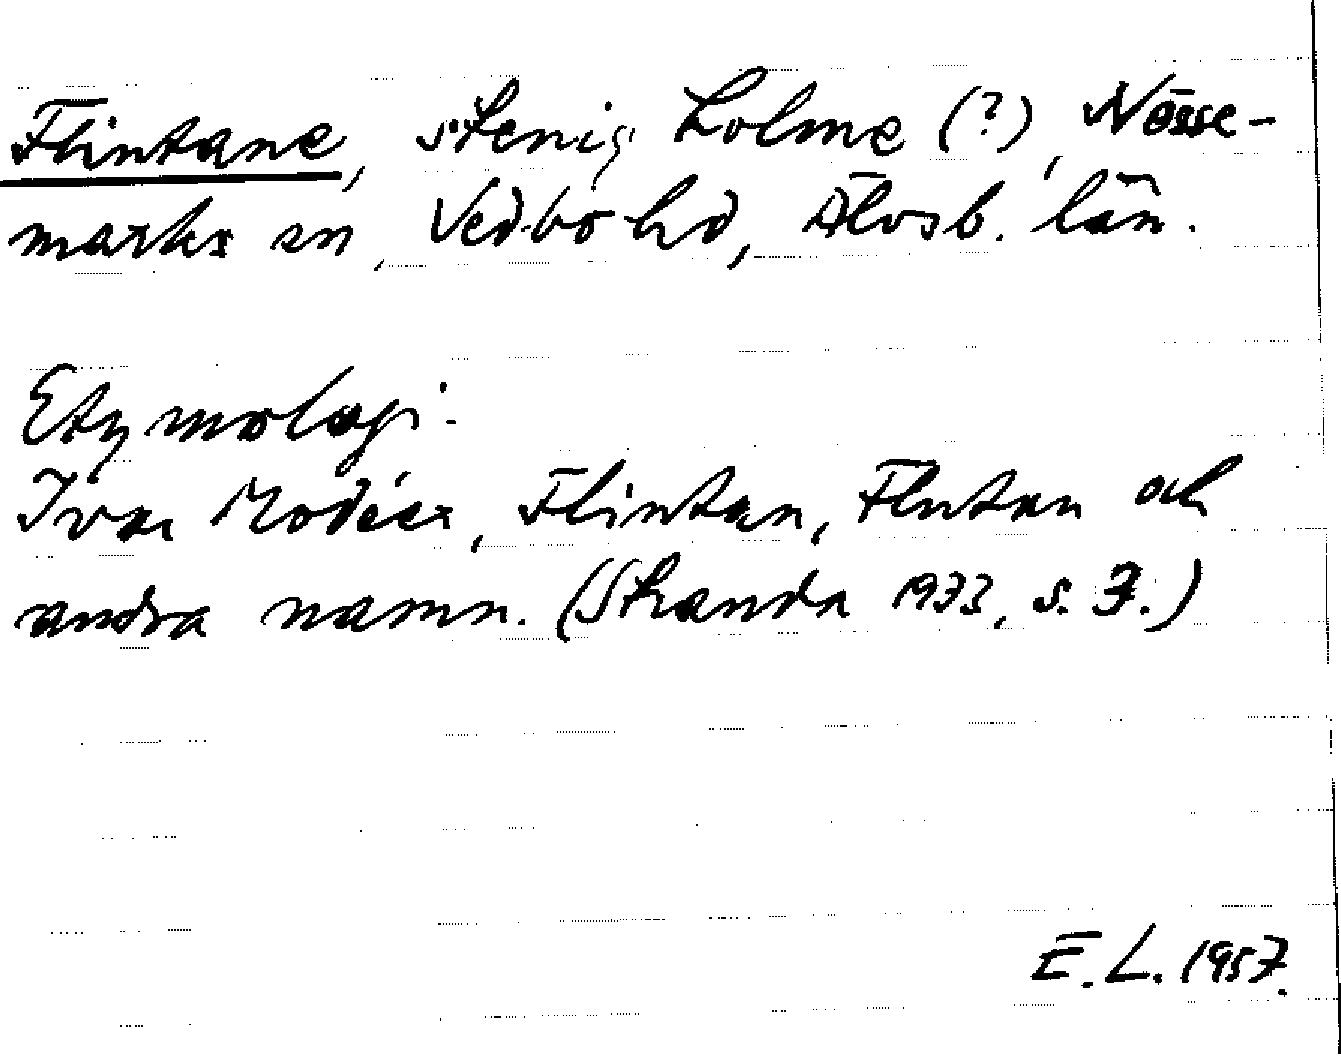 Flintane, stenig holme (?), Nösse-
marks sn, Vedbo hd, Älvsb. län.
Etymologi.
Ivar Modéer, Flintan, Flutan och
andra namn. (Skanda 1933, s. 7.)
E. L. 1957.